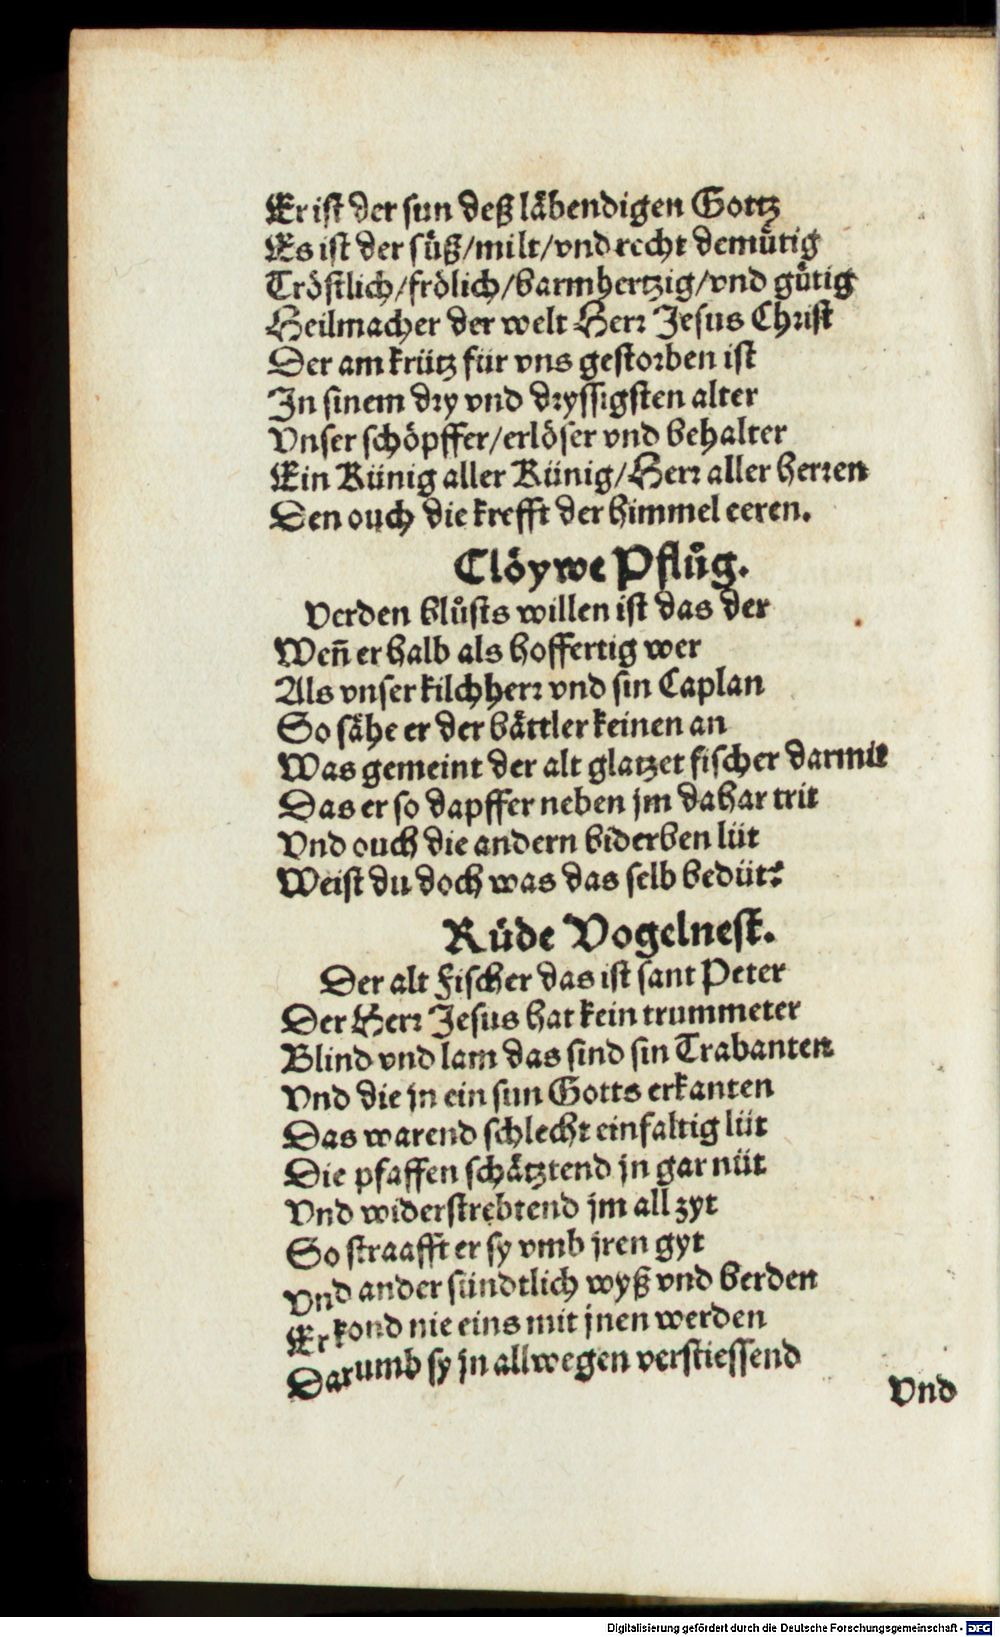 Er ist der sun deß läbendigen Gottz
Es ist der süß/milt/vnd recht demütig
Tröstlich/frölich/barmhertzig/vnd gütig
Heilmacher der welt Herr Jesus Christ
Der am krütz für vns gestorben ist
In sinem dry vnd dryssigsten alter
Vnser schöpffer/erlöser vnd behalter
Ein Künig aller Künig/Herr aller herren
Den ouch die krefft der himmel eeren.
Clöywe Pflůg.
Verden blůsts willen ist das der
Wen̄ er halb als hoffertig wer
Als vnser kilchherr vnd sin Caplan
So sähe er der bättler keinen an
Was gemeint der alt glatzet fischer darmit
Das er so dapffer neben jm dahar trit
Vnd ouch die andern biderben lüt
Weist du doch was das selb bedüt?
Rüde Vogelnest.
Der alt Fischer das ist sant Peter
Der Herr Jesus hat kein trummeter
Blind vnd lam das sind sin Trabanten
Vnd die jn ein sun Gotts erkanten
Das warend schlecht einfaltig lüt
Die pfaffen schätztend jn gar nüt
Vnd widerstrebtend jm all zyt
So straafft er sy vmb jren gyt
Vnd ander sündtlich wyß vnd berden
Er kond nie eins mit jnen werden
Darumb sy jn allwegen verstiessend
Vnd
Digitalisierung gefördert durch die Deutsche Forschungsgemeinschaft - DFG